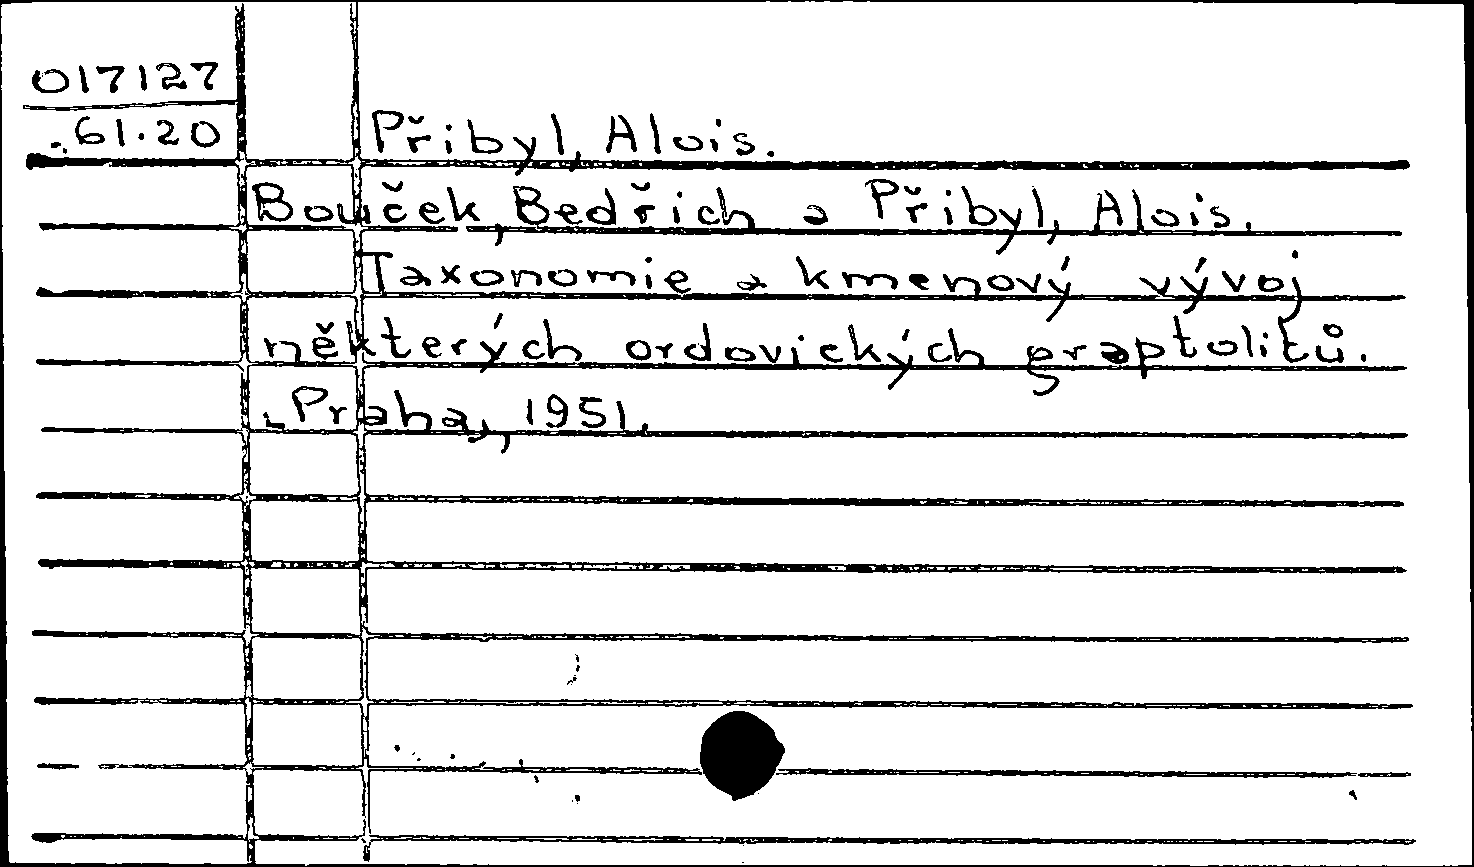 017127
61.20 Přibyl, Alois.
Bouček, Bedřich a Přibyl, Alois.
Taxonomie a kmenový vývoj
některých ordovických graptolitů.
Praha, 1951.